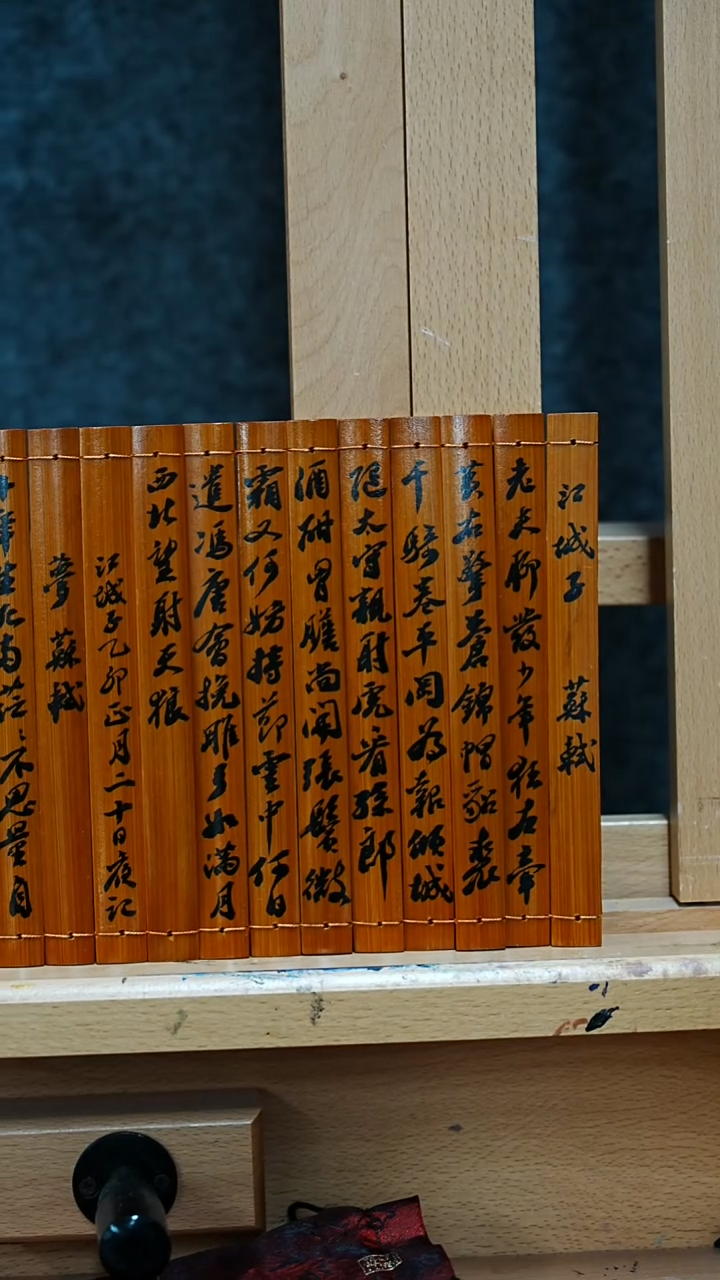 江城子 蘇軾
老夫聊發少年狂右牽
黃右擎蒼錦帽貂裘
千騎卷平岡為報傾城
隨太守親射虎看孫郎
酒酣胸膽尚開張鬢微
霜又何妨持節雲中何日
遣馮唐會挽雕弓如滿月
西北望射天狼
江城子乙卯正月二十日夜記
夢 蘇軾
十年生死兩茫〻不思量自